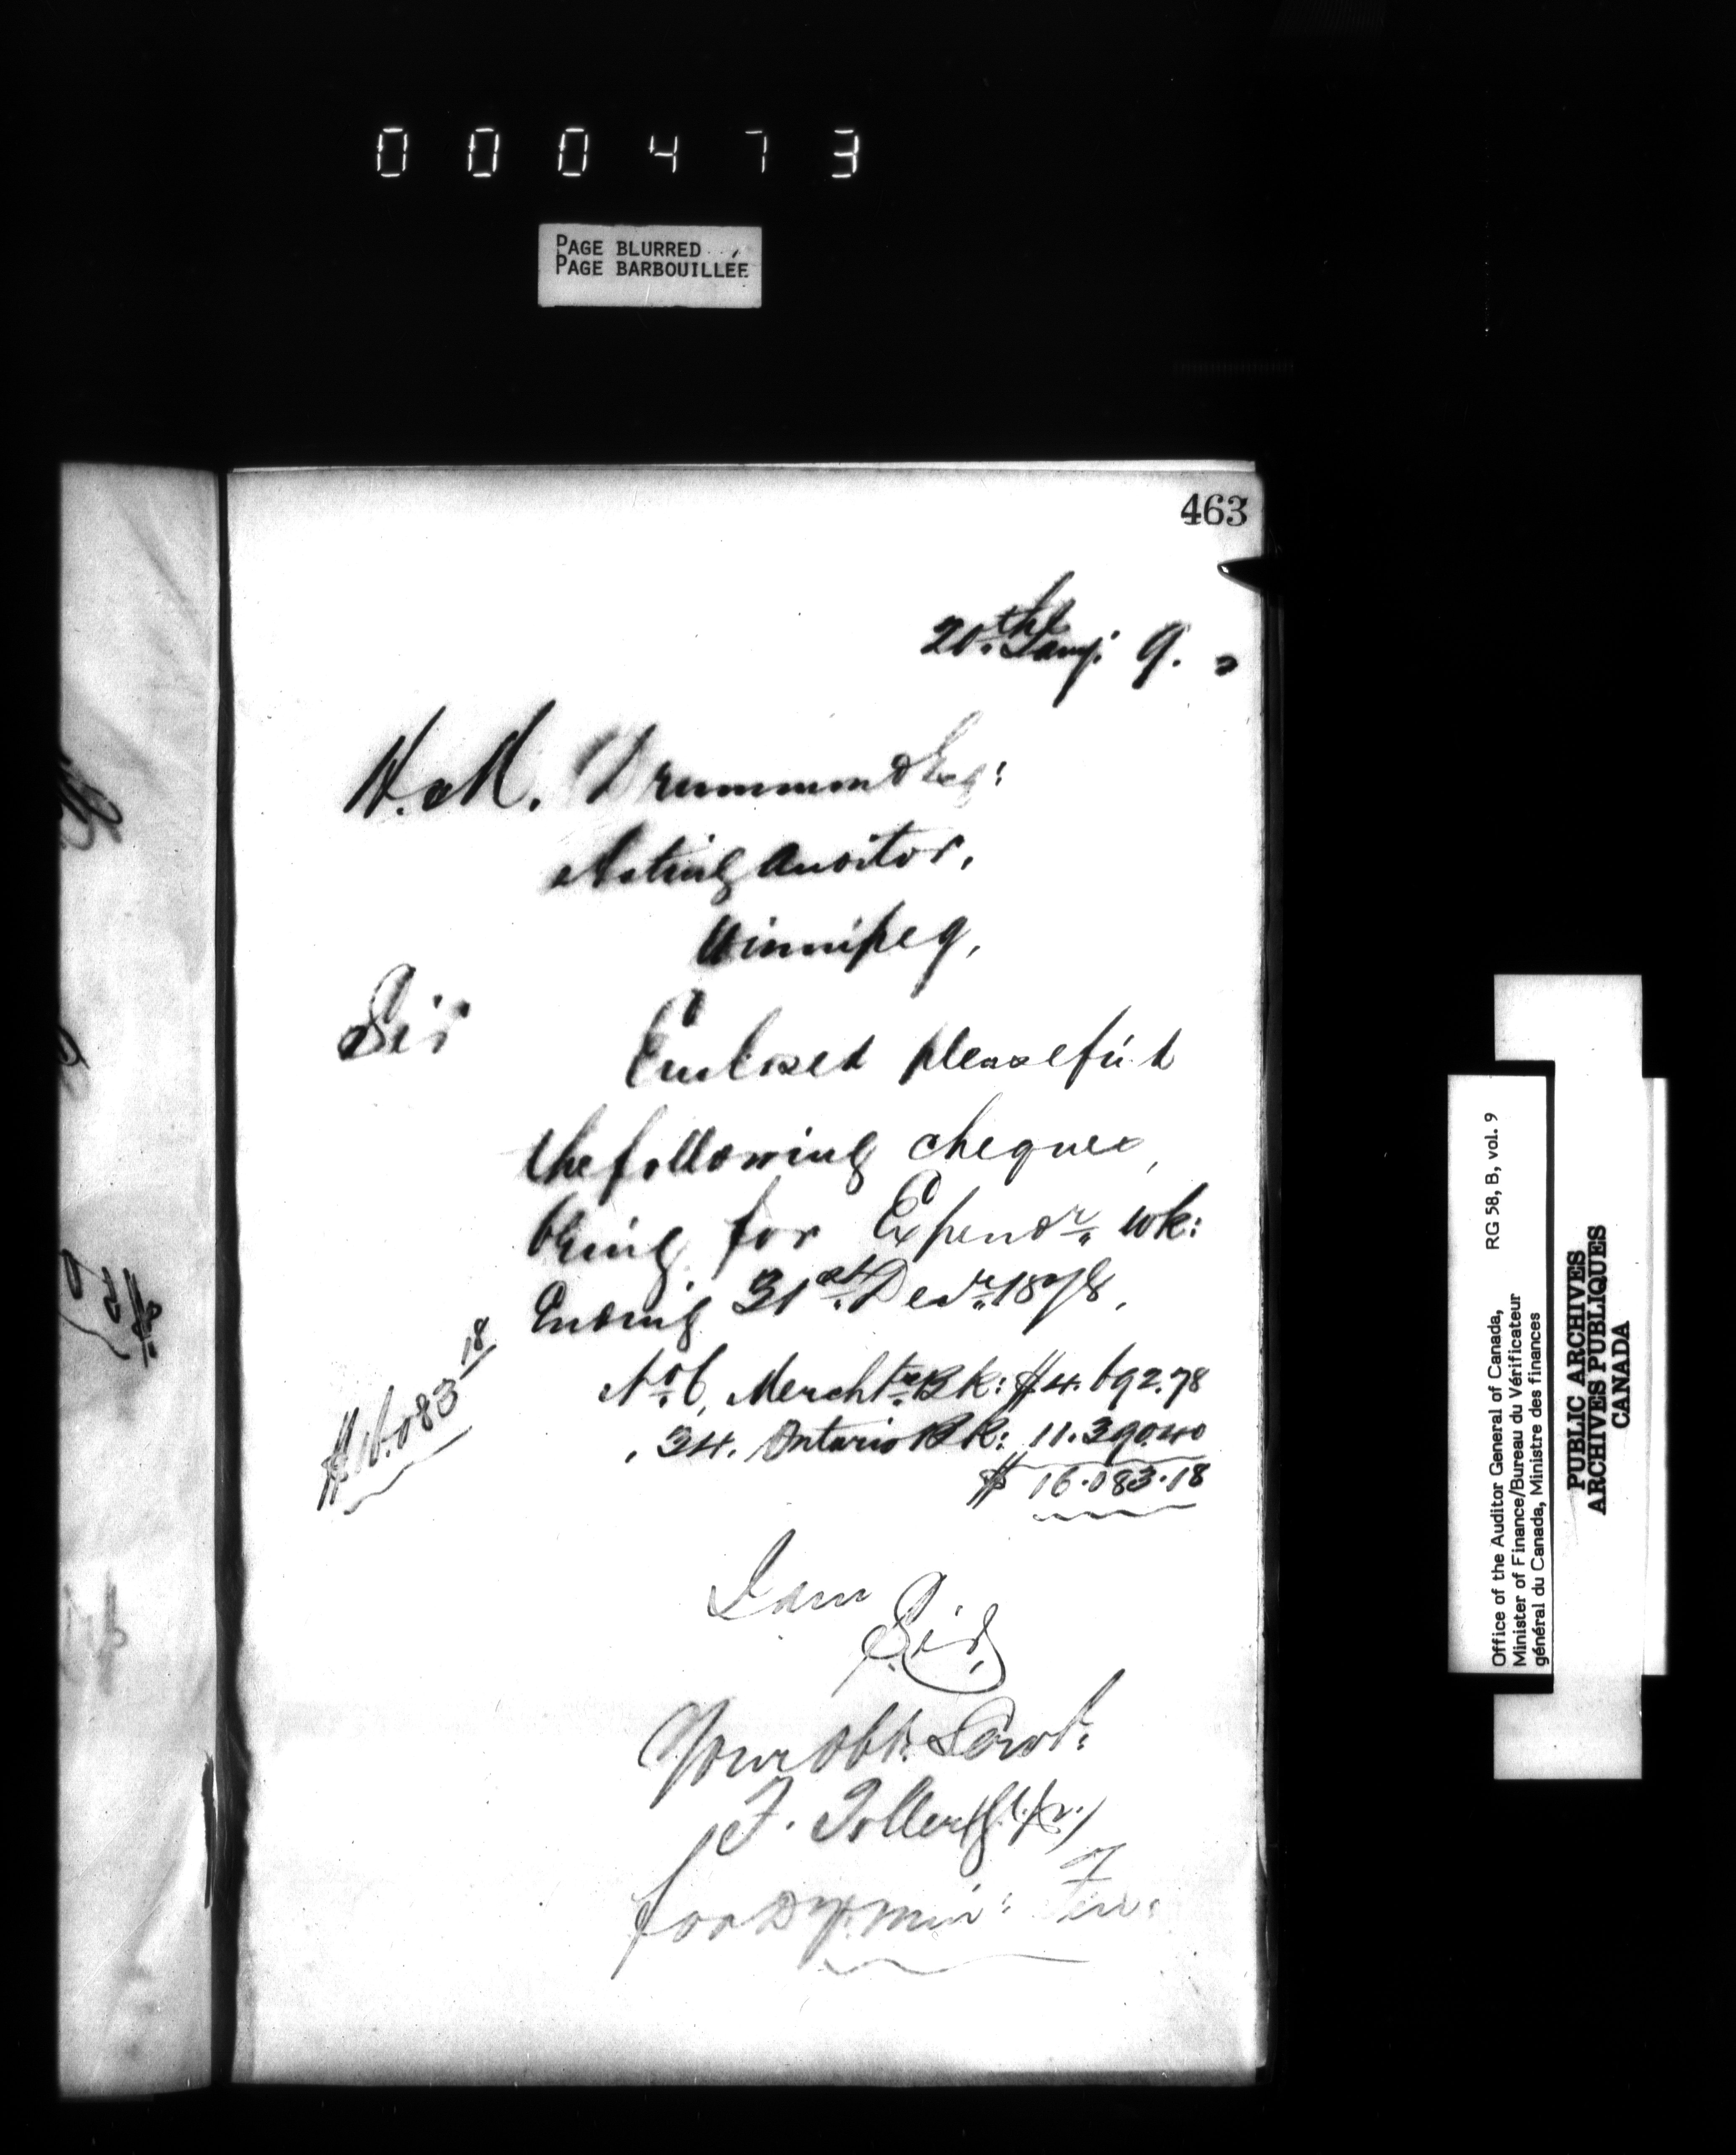 000473
PAGE BLURRED
PAGE BARBOUILLÉE
463
20th Jany: 9.
H. M. Drummond Esq:
Acting Auditor,
Winnipeg,
Sir
Enclosed please find
the following cheques,
being for Expendre wk:
Ending 31st Decr 1878,
No 6, Merchts Bk: $4.692.78
, 34. Ontario Bk: 11.390.40
$ 16.083.18
$16.083 18
I am
Sir,
Your Obt. Servt:
F. Toller
for Dy. Min: Fin:
Office of the Auditor General of Canada,
Minister of Finance/Bureau du Vérificateur
général du Canada, Ministre des finances
RG 58, B, vol. 9
PUBLIC ARCHIVES
ARCHIVES PUBLIQUES
CANADA